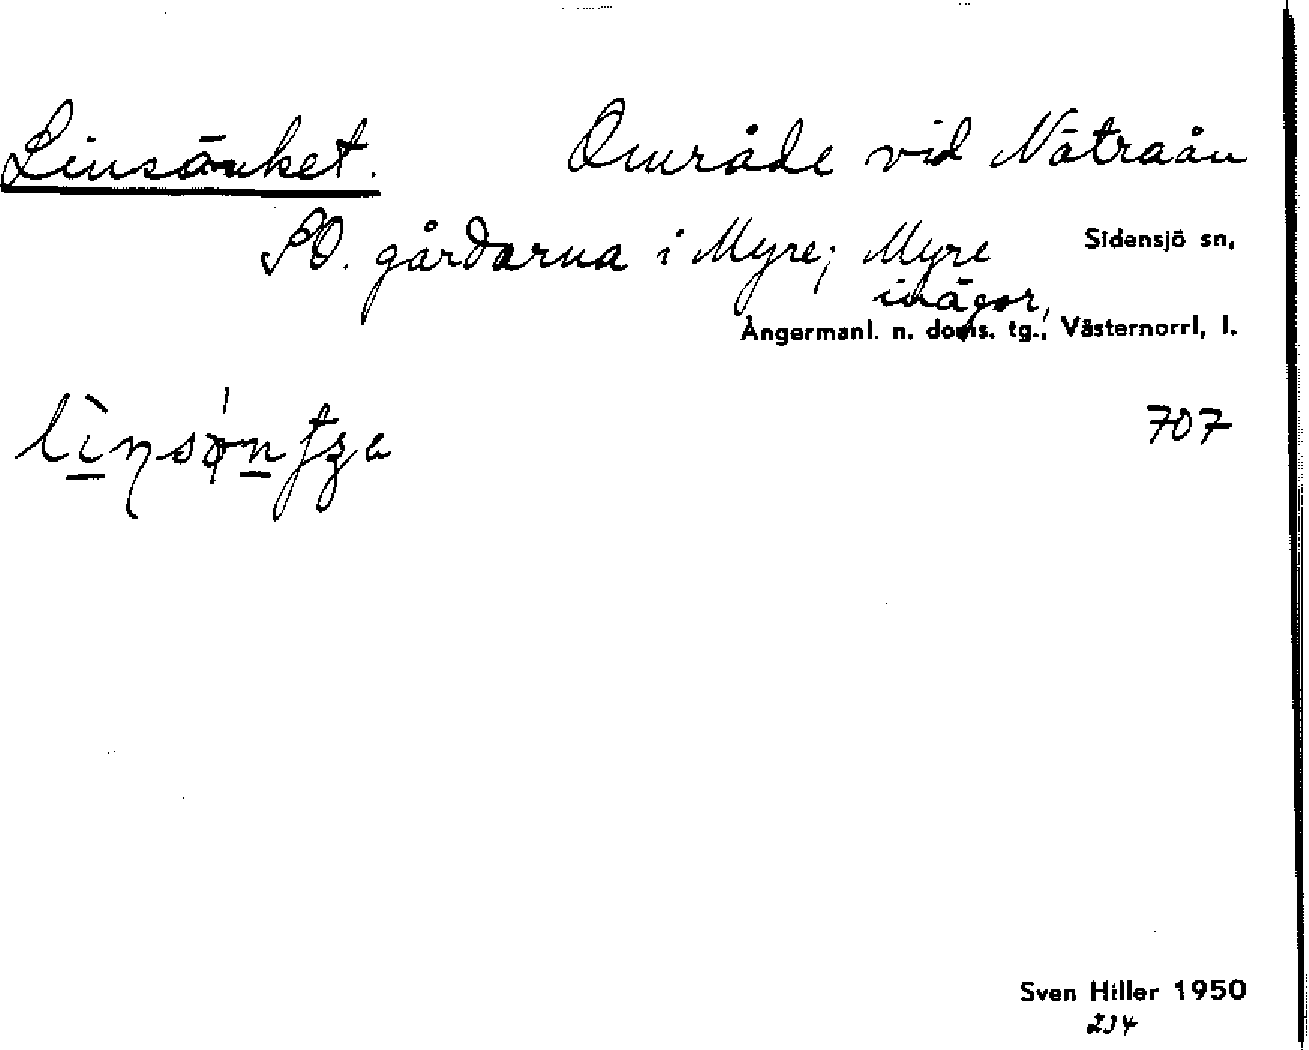 Linsänket. Område vid Nätraån
SO. gårdarna i Myre; Myre Sidensjö sn,
inägor,
Ångermanl. n. doms. tg., Västernorrl. l.
707
Sven Hiller 1950
234